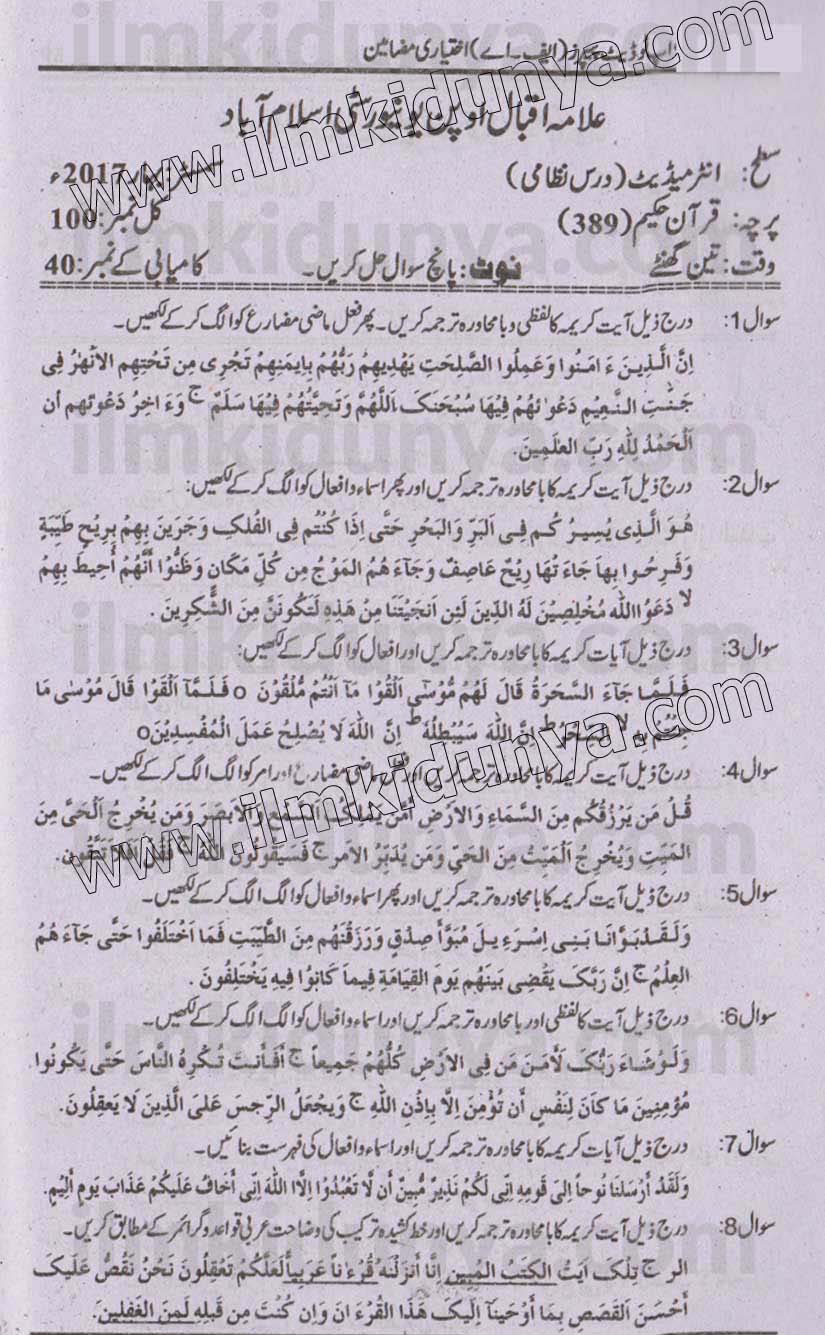 (ایف۔اے) اختیاری مضامین
علامہ اقبال اوپن یونیورسٹی اسلام آباد
سطح: انٹرمیڈیٹ (درس نظامی) 2017ء
پرچہ: قرآن حکیم (389) کل نمبر: 100
وقت: تین گھنٹے نوٹ: پانچ سوال حل کریں۔ کامیابی کے نمبر: 40
سوال 1: درج ذیل آیت کریمہ کا لفظی و بامحاورہ ترجمہ کریں۔ پھر فعل ماضی مضارع کو الگ کر کے لکھیں۔
اِنَّ الَّذِينَ ءَ امَنُوا وَعَمِلُوا الصّٰلِحٰتِ يَهْدِيهِمْ رَبُّهُمْ بِاِيمٰنِهِمْ تَجْرِى مِن تَحْتِهِم الاَنْهٰرُ فِى
جَنّٰتِ النَّعِيْمِ دَعْوٰ ئهُمْ فِيْهَا سُبْحٰنَكَ اَللّٰهُمَّ وَتَحِيَّتُهُمْ فِيْهَا سَلٰمٌ ج وَءَ اخِرُ دَعْوٰئهم اَن
اَلْحَمْدُ لِلّٰهِ رَبِّ العٰلَمِيْنَ.
سوال 2: درج ذیل آیت کریمہ کا بامحاورہ ترجمہ کریں اور پھر اسماء و افعال کو الگ کر کے لکھیں:
هُوَ الَّذِى يُسِيرُ كُم فِى اَلبَرِّ وَالبَحْرِ حَتّٰى اِذَا كُنْتُم فِى الفُلكِ وَجَرَيْنَ بِهِمْ بِرِيْحٍ طَيِّبَةٍ
وَفَرِحُوا بِهَا جَاءَ تهَا رِيْحٌ عَاصِفٌ وَجَآءَ هُمُ المَوْجُ مِن كُلِّ مَكَانٍ وَظَنُّوْا اَنَّهُمْ اُحِيطَ بِهِمْ
لا دَعَوُا اللهَ مُخْلِصِيْنَ لَهُ الدِّينَ لَئِن اَنجَيْتَنَا مِنْ هٰذِهِ لَنَكُونَنَّ مِنَ الشّٰكِرِينَ.
سوال 3: درج ذیل آیات کریمہ کا بامحاورہ ترجمہ کریں اور افعال کو الگ کر کے لکھیں:
فَلَمَّا جَآءَ السَّحَرَةُ قَالَ لَهُمْ مُّوْسٰى اَلْقُوْا مَآ اَنْتُمْ مُلْقُوْنَ o فَلَمَّآ اَلْقَوْا قَالَ مُوْسٰى مَا
جِئْتُمْ بِهِ لا السِّحْرُ ط اِنَّ اللّٰهَ سَيُبْطِلُهُ ط اِنَّ اللّٰهَ لَا يُصْلِحُ عَمَلَ الْمُفْسِدِيْنَ o
سوال 4: درج ذیل آیت کریمہ کا بامحاورہ ترجمہ کریں اور فعل ماضی مضارع اور امر کو الگ الگ کر کے لکھیں۔
قُلْ مَن يَرْزُقُكُم مِنَ السَّمَاءِ وَالاَرْضِ اَمَّن يَّمْلِكُ السَّمْعَ وَالاَبصٰرَ وَمَن يُخْرِجُ اَلحَىَّ مِنَ
المَيِّتِ وَيُخْرِجُ اَلمَيِّتَ مِنَ الحَىِّ وَمَن يُدَبِّرُ الاَمرَ ج فَسَيَقُولُونَ اللهُ ج فَقُلْ اَفَلَا تَتَّقُونَ.
سوال 5: درج ذیل آیت کریمہ کا بامحاورہ ترجمہ کریں اور پھر اسماء و افعال کو الگ الگ کر کے لکھیں۔
وَلَقَد بَوَّانَا بَنِى اِسْرَءِ يلَ مُبَوَّاَ صِدْقٍ وَرَزَقْنٰهُم مِنَ الطَّيِّبٰتِ فَمَا اخْتَلَفُوا حَتّٰى جَآءَ هُمُ
العِلْمُ ج اِنَّ رَبَّكَ يَقْضِى بَينَهُم يَومَ القِيَامَةِ فِيمَا كَانُوا فِيهِ يَخْتَلِفُونَ.
سوال 6: درج ذیل آیت کا لفظی اور بامحاورہ ترجمہ کریں اور اسماء و افعال کو الگ الگ کر کے لکھیں۔
وَلَوْشَاءَ رَبُّكَ لَاٰمَنَ مَن فِى الاَرْضِ كُلُّهُمْ جَمِيعاً ج اَفَاَنتَ تُكْرِهُ النَّاسَ حَتّٰى يَكُونُوا
مُؤْمِنِينَ مَا كَانَ لِنَفْسٍ اَن تُؤْمِنَ اِلَّا بِاِذْنِ اللهِ ج وَيَجْعَلُ الرِّجسَ عَلىَ الَّذِينَ لَا يَعْقِلُونَ.
سوال 7: درج ذیل آیات کریمہ کا بامحاورہ ترجمہ کریں اور اسماء و افعال کی فہرست بنائیں۔
وَلَقَدْ اَرْسَلنَا نُوحاً اِلىٰ قَومِهِ اِنِّى لَكُمْ نَذِيرٌ مُّبِينٌ اَن لَّا تَعْبُدُوا اِلَّا اللهَ اِنِّى اَخَافُ عَلَيكُمْ عَذَابَ يَومٍ اَلِيْمٍ.
سوال 8: درج ذیل آیات کریمہ کا بامحاورہ ترجمہ کریں اور خط کشیدہ ترکیب کی وضاحت عربی قواعد و گرائمر کے مطابق کریں۔
الر ج تِلْكَ اٰيٰتُ الكِتٰبُ المُبِينِ اِنَّا اَنزَلْنٰهُ قُرْءٰناً عَرَبِياًّ لَعَلَّكُمْ تَعْقِلُونَ نَحْنُ نَقُصُّ عَلَيكَ
اَحْسَنَ اَلقَصَصِ بِمَا اَوْحَينَآ اِلَيكَ هٰذَا القُرْءَ انَ وَاِن كُنْتَ مِن قَبلِهِ لَمِنَ الغٰفِلِينَ.
www.ilmkidunya.com
www.ilmkidunya.com
ilmkidunya.com